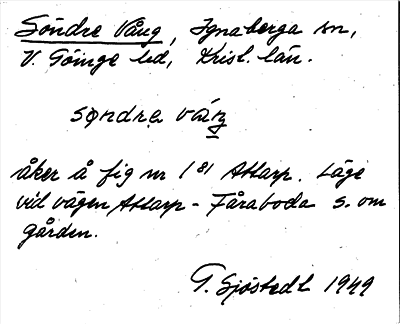 Söndre Vång, Ignaberga sn,
V. Göinge hd, Krist. län.
søndrə váŋ
åker å fig nr 1⁸¹ Attarp. Läge
vid vägen Attarp - Fåraboda s. om
gården.
G. Sjöstedt 1949